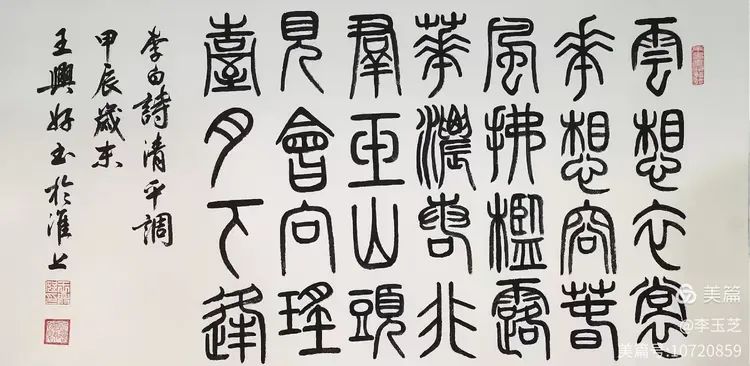 雲想衣裳
花想容春
風拂檻露
華濃若非
羣玉山頭
見會向瑤
臺月下逢
李白詩清平調
甲辰歲末
王興好书於淮上
美篇
@李玉芝
美篇号:10720859